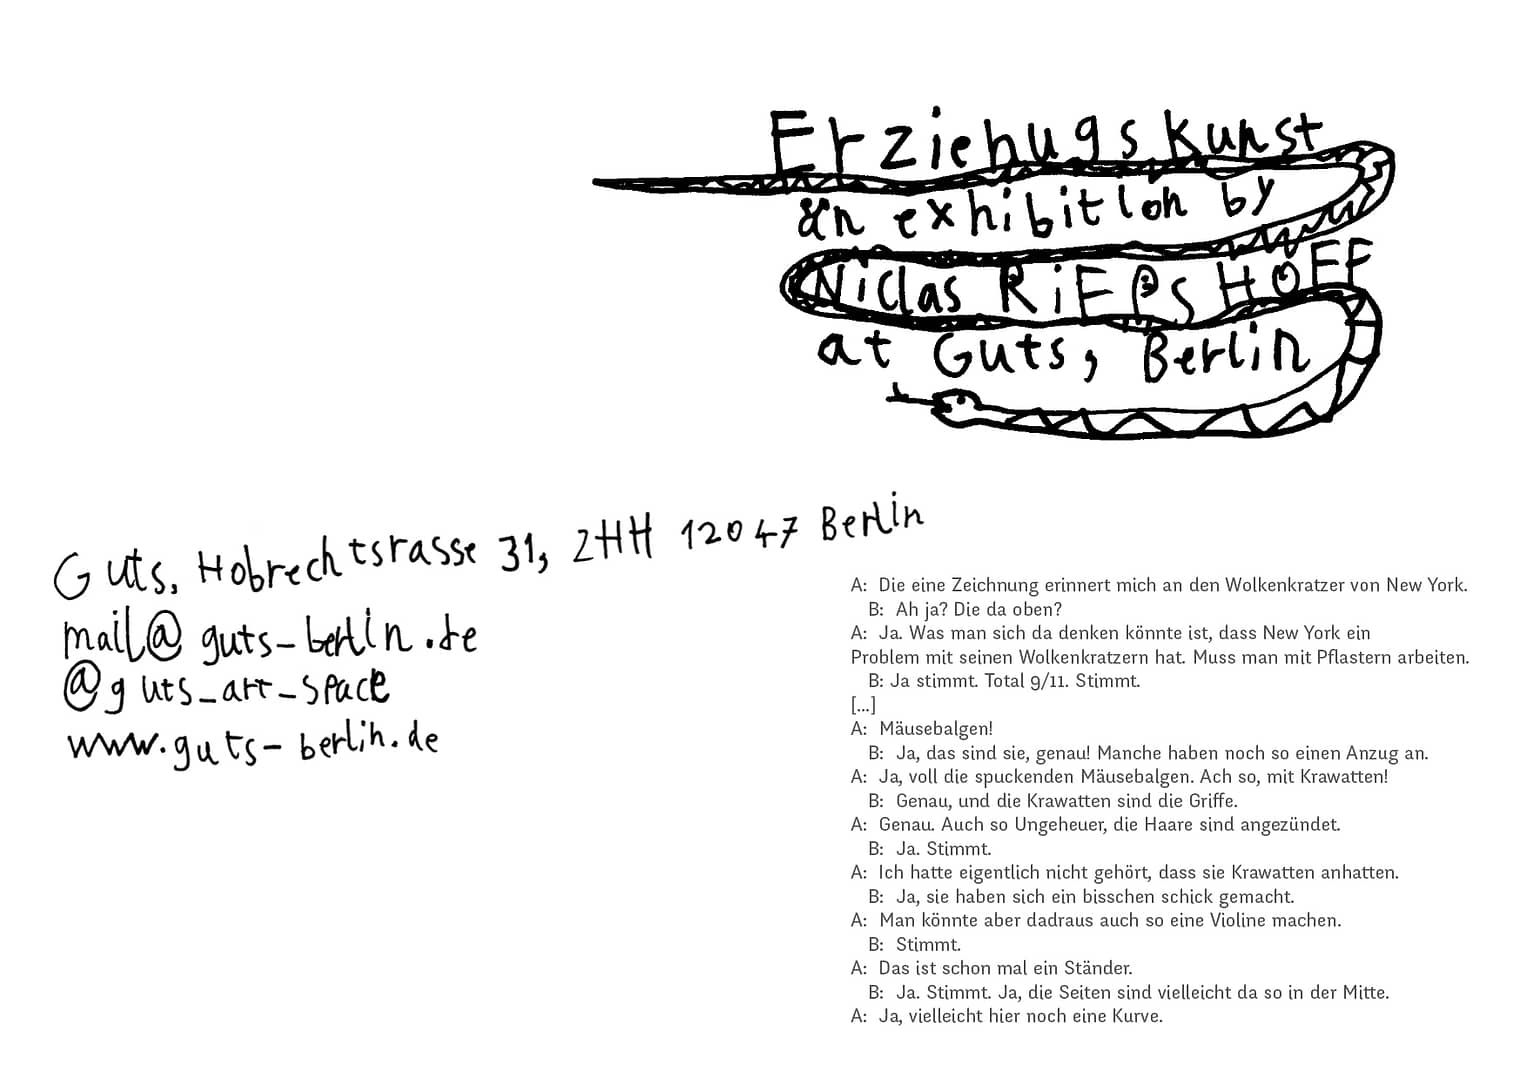 Erziehugskunst
an exhibition by
Niclas RiEPsHOFF
at Guts, Berlin
Guts, Hobrechtsrasse 31, 2HH 12047 Berlin
mail@guts-berlin.de
@guts_art_space
www.guts-berlin.de
A: Die eine Zeichnung erinnert mich an den Wolkenkratzer von New York.
B: Ah ja? Die da oben?
A: Ja. Was man sich da denken könnte ist, dass New York ein
Problem mit seinen Wolkenkratzern hat. Muss man mit Pflastern arbeiten.
B: Ja stimmt. Total 9/11. Stimmt.
[...]
A: Mäusebalgen!
B: Ja, das sind sie, genau! Manche haben noch so einen Anzug an.
A: Ja, voll die spuckenden Mäusebalgen. Ach so, mit Krawatten!
B: Genau, und die Krawatten sind die Griffe.
A: Genau. Auch so Ungeheuer, die Haare sind angezündet.
B: Ja. Stimmt.
A: Ich hatte eigentlich nicht gehört, dass sie Krawatten anhatten.
B: Ja, sie haben sich ein bisschen schick gemacht.
A: Man könnte aber dadraus auch so eine Violine machen.
B: Stimmt.
A: Das ist schon mal ein Ständer.
B: Ja. Stimmt. Ja, die Seiten sind vielleicht da so in der Mitte.
A: Ja, vielleicht hier noch eine Kurve.